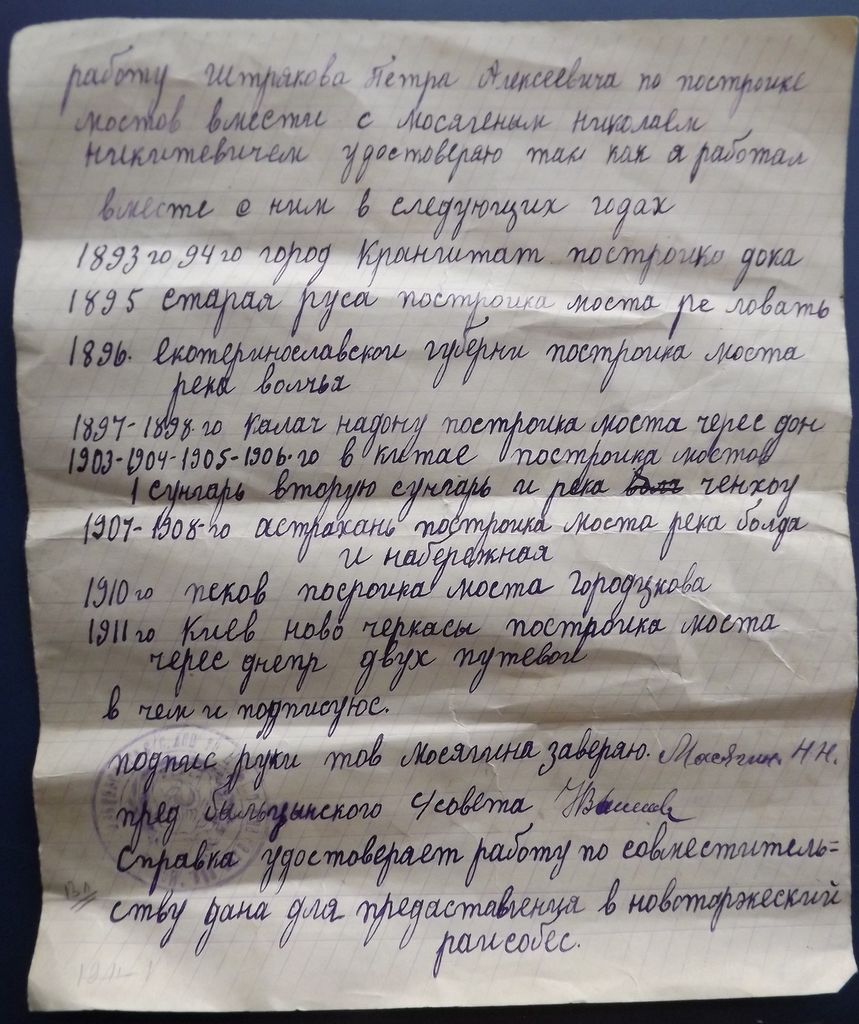 работу Штрякова Петра Алексеевича по постройке
мостов вмести с мосягеным николаем
никитевичем удостоверяю так как я работал
вместе с ним в следующих годах
1893 го 94 го город Крангитат постройка дока
1895 старая руса постройка моста ре ловать
1896. екотеринославской губерни постройка моста
река волчья
1897-1898-го калач надону постройка моста черес дон
1903-1904-1905-1906-го в китае постройка мостов
1 сунгарь вторую сунгарь и река ченхоу
1907-1908-го астрахань постройка моста река болда
и набережная
1910 го псков посройка моста Городцкова
1911 го Киев ново черкасы постройка моста
черес днепр двух путевой
в чем и подписуюс.
подпис руки тов мосягина заверяю. Масягин Н Н.
пред сельсовета
справка удостоверяет работу по совместитель=
ству дана для предаставленця в новоторжеский
райсобес.